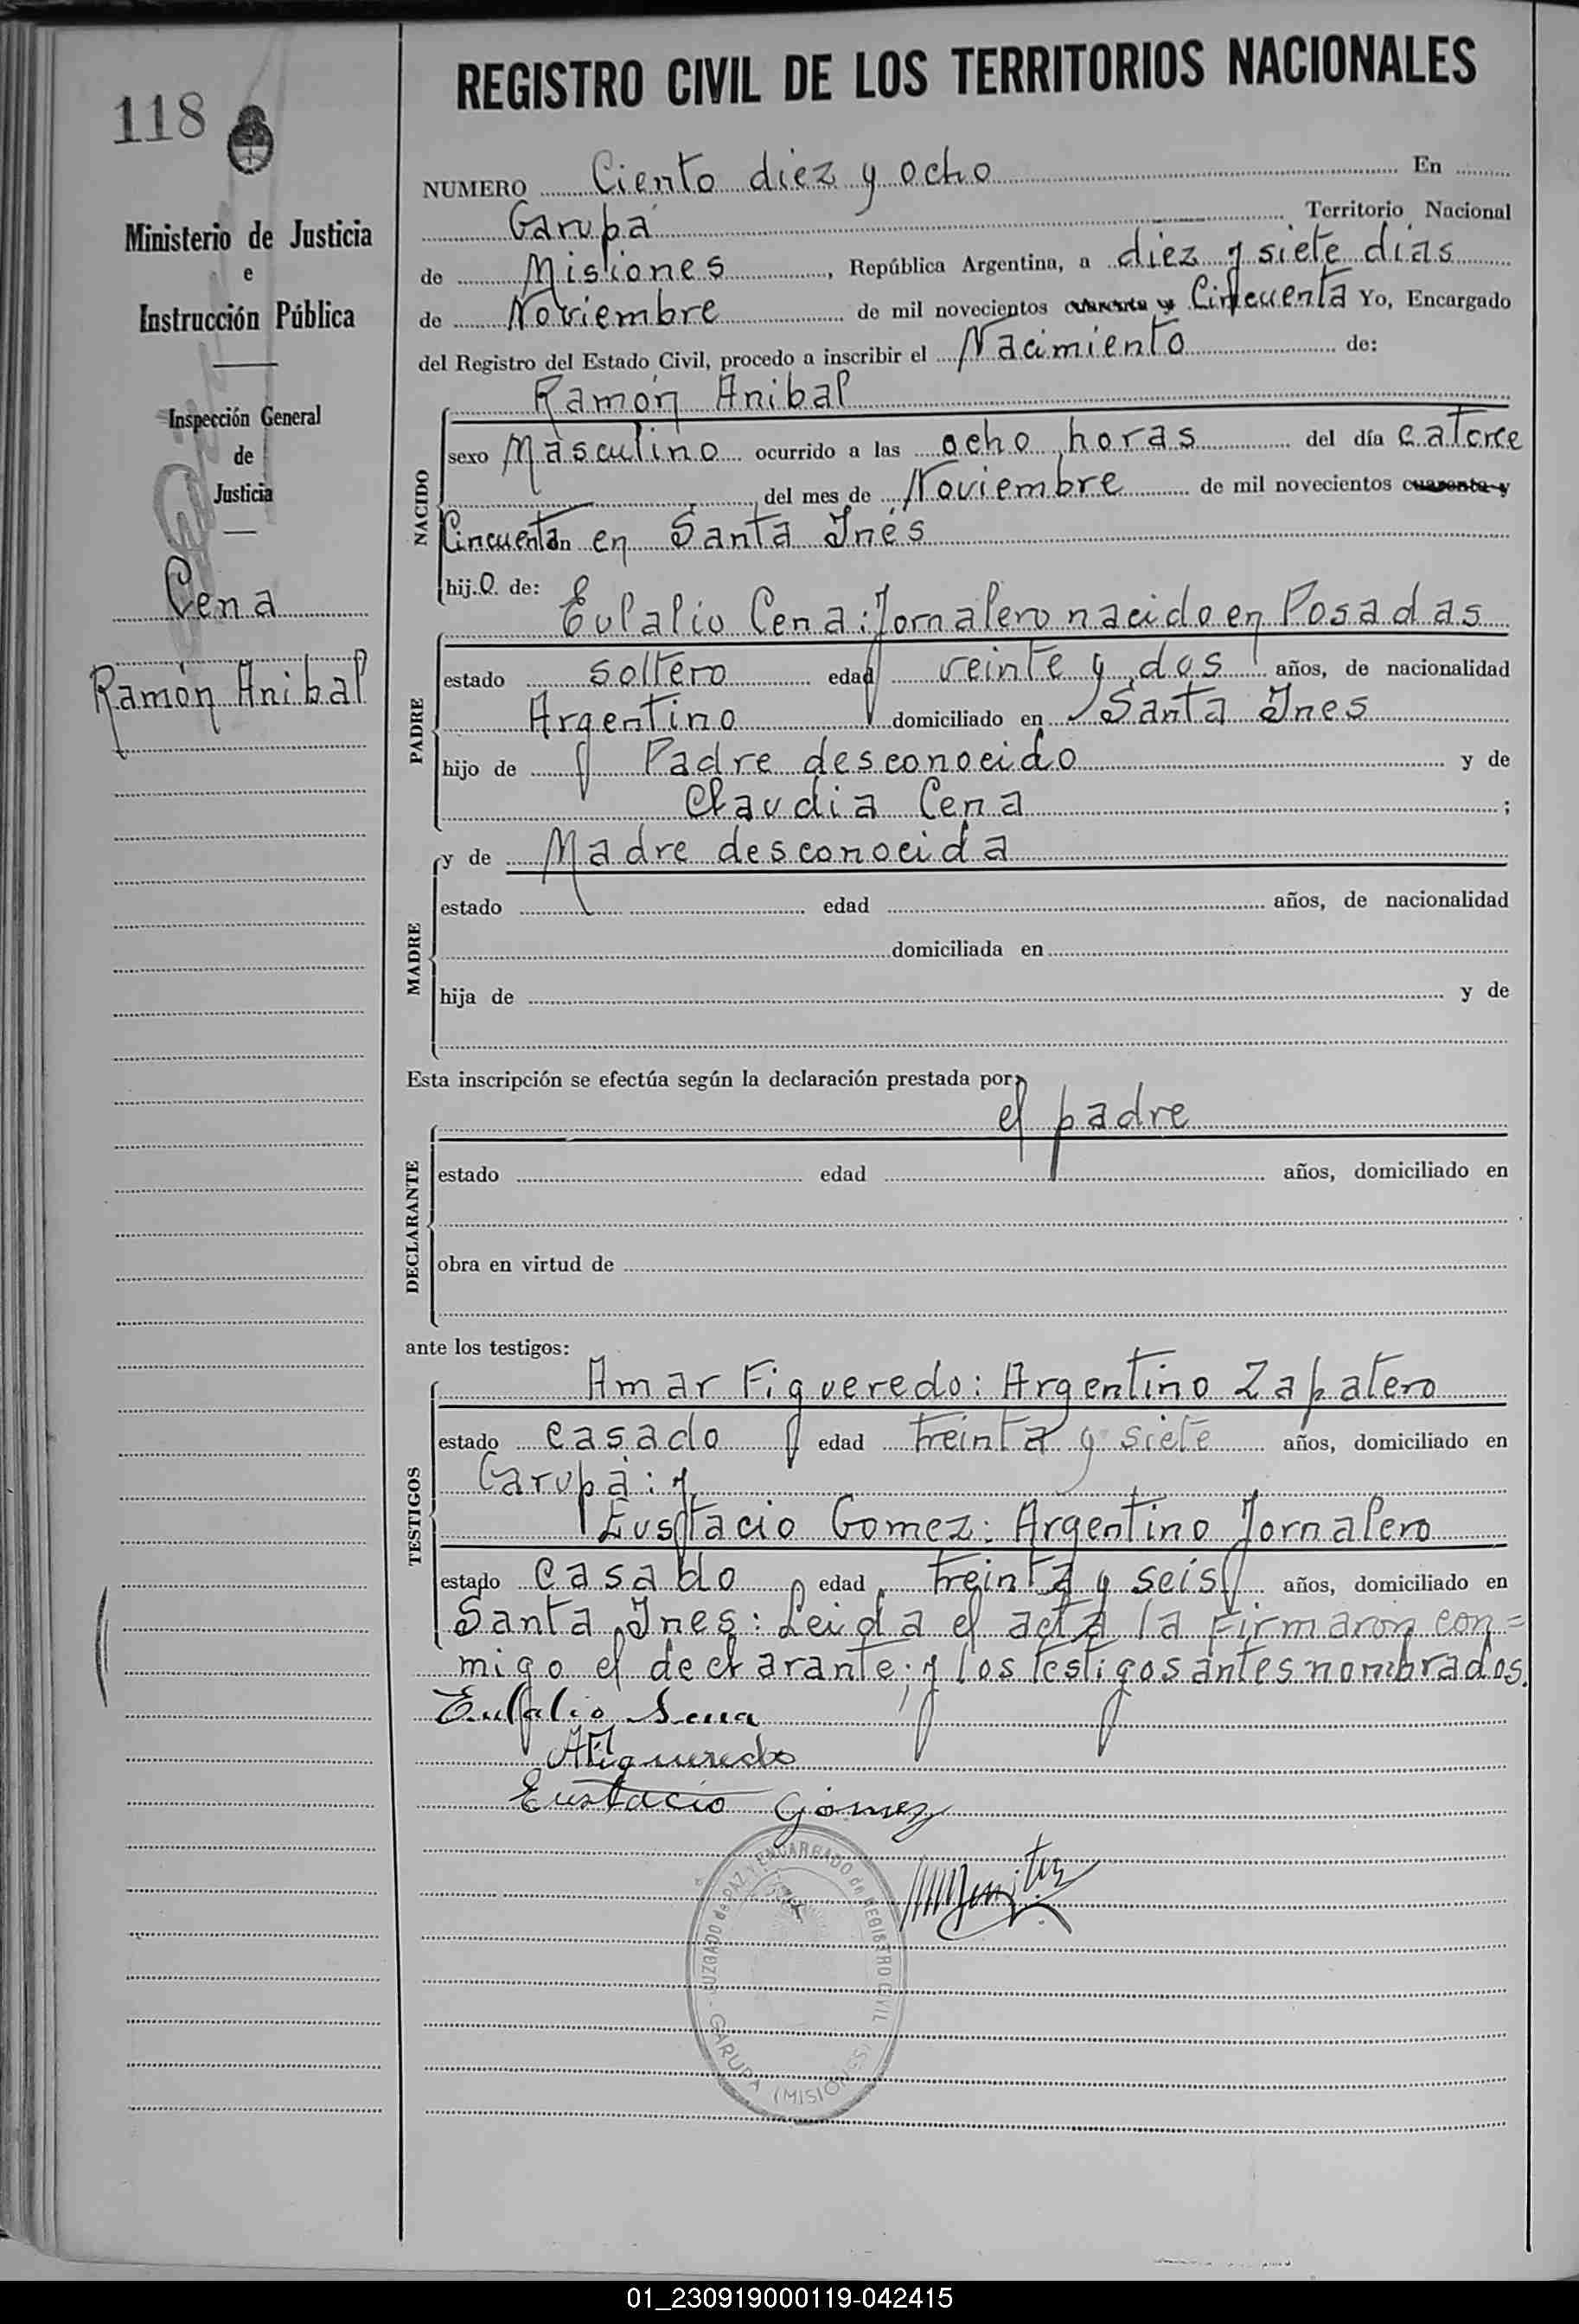 118
Ministerio de Justicia
e
Instrucción Pública
Inspección General
de
Justicia
Cena
Ramón Anibal
REGISTRO CIVIL DE LOS TERRITORIOS NACIONALES
NUMERO Ciento diez y ocho En
Garupá Territorio Nacional
de Misiones, República Argentina, a diez y siete días
de Noviembre de mil novecientos cuarenta y Cincuenta Yo, Encargado
del Registro del Estado Civil, procedo a inscribir el Nacimiento de:
Ramón Anibal
NACIDO
sexo Masculino ocurrido a las ocho horas del día catorce
del mes de Noviembre de mil novecientos cuarenta y
Cincuenta en Santa Inés
hij.o. de:
Eulalio Cena: Jornalero nacido en Posadas
PADRE
estado soltero edad veinte y dos años, de nacionalidad
Argentino domiciliado en Santa Ines
hijo de Padre desconocido y de
Claudia Cena ;
y de Madre desconocida
MADRE
estado edad años, de nacionalidad
domiciliada en
hija de y de
Esta inscripción se efectúa según la declaración prestada por:
el padre
DECLARANTE
estado edad años, domiciliado en
obra en virtud de
ante los testigos:
Amar Figueredo: Argentino Zapatero
TESTIGOS
estado casado edad treinta y siete años, domiciliado en
Garupá: y
Eustacio Gomez: Argentino Jornalero
estado casado edad treinta y seis años, domiciliado en
Santa Ines: Leida el acta la firmaron con=
migo el declarante; y los testigos antes nombrados.
Eulalio Sena
AFigueredo
Eustacio Gómez
JUZGADO de PAZ Y ENCARGADO de REGISTRO CIVIL
GARUPA (MISIONES)
01_230919000119-042415